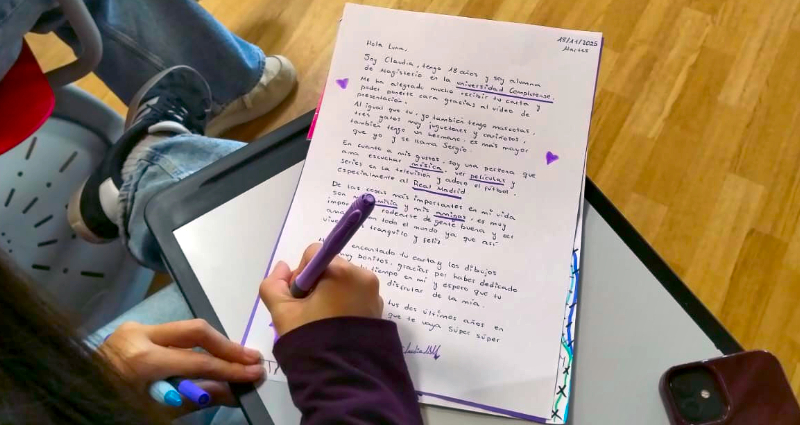 18/11/2025
Martes
Hola Luna,
Soy Claudia, tengo 18 años y soy alumna
de Magisterio en la Universidad Complutense.
Me ha alegrado mucho recibir tu carta y
poder ponerte cara gracias al video de
presentación.
Al igual que tu, yo también tengo mascotas,
tres gatos muy juguetones y cariñosos,
también tengo un hermano, es más mayor
que yo y se llama Sergio.
En cuanto a mis gustos, soy una persona que
ama escuchar música, ver películas y
series en la televisión y adoro el fútbol,
especialmente al Real Madrid.
De las cosas más importantes en mi vida
son mi familia y mis amigos, es muy
rodearte de gente buena y ser
con todo el mundo ya que así
tranquilo y feliz
encantado tu carta y los dibujos
bonitos, gracias por haber dedicado
tiempo en mi y espero que tu
disfrutar de la mia.
tus dos últimos años en
que te vaya súper súper